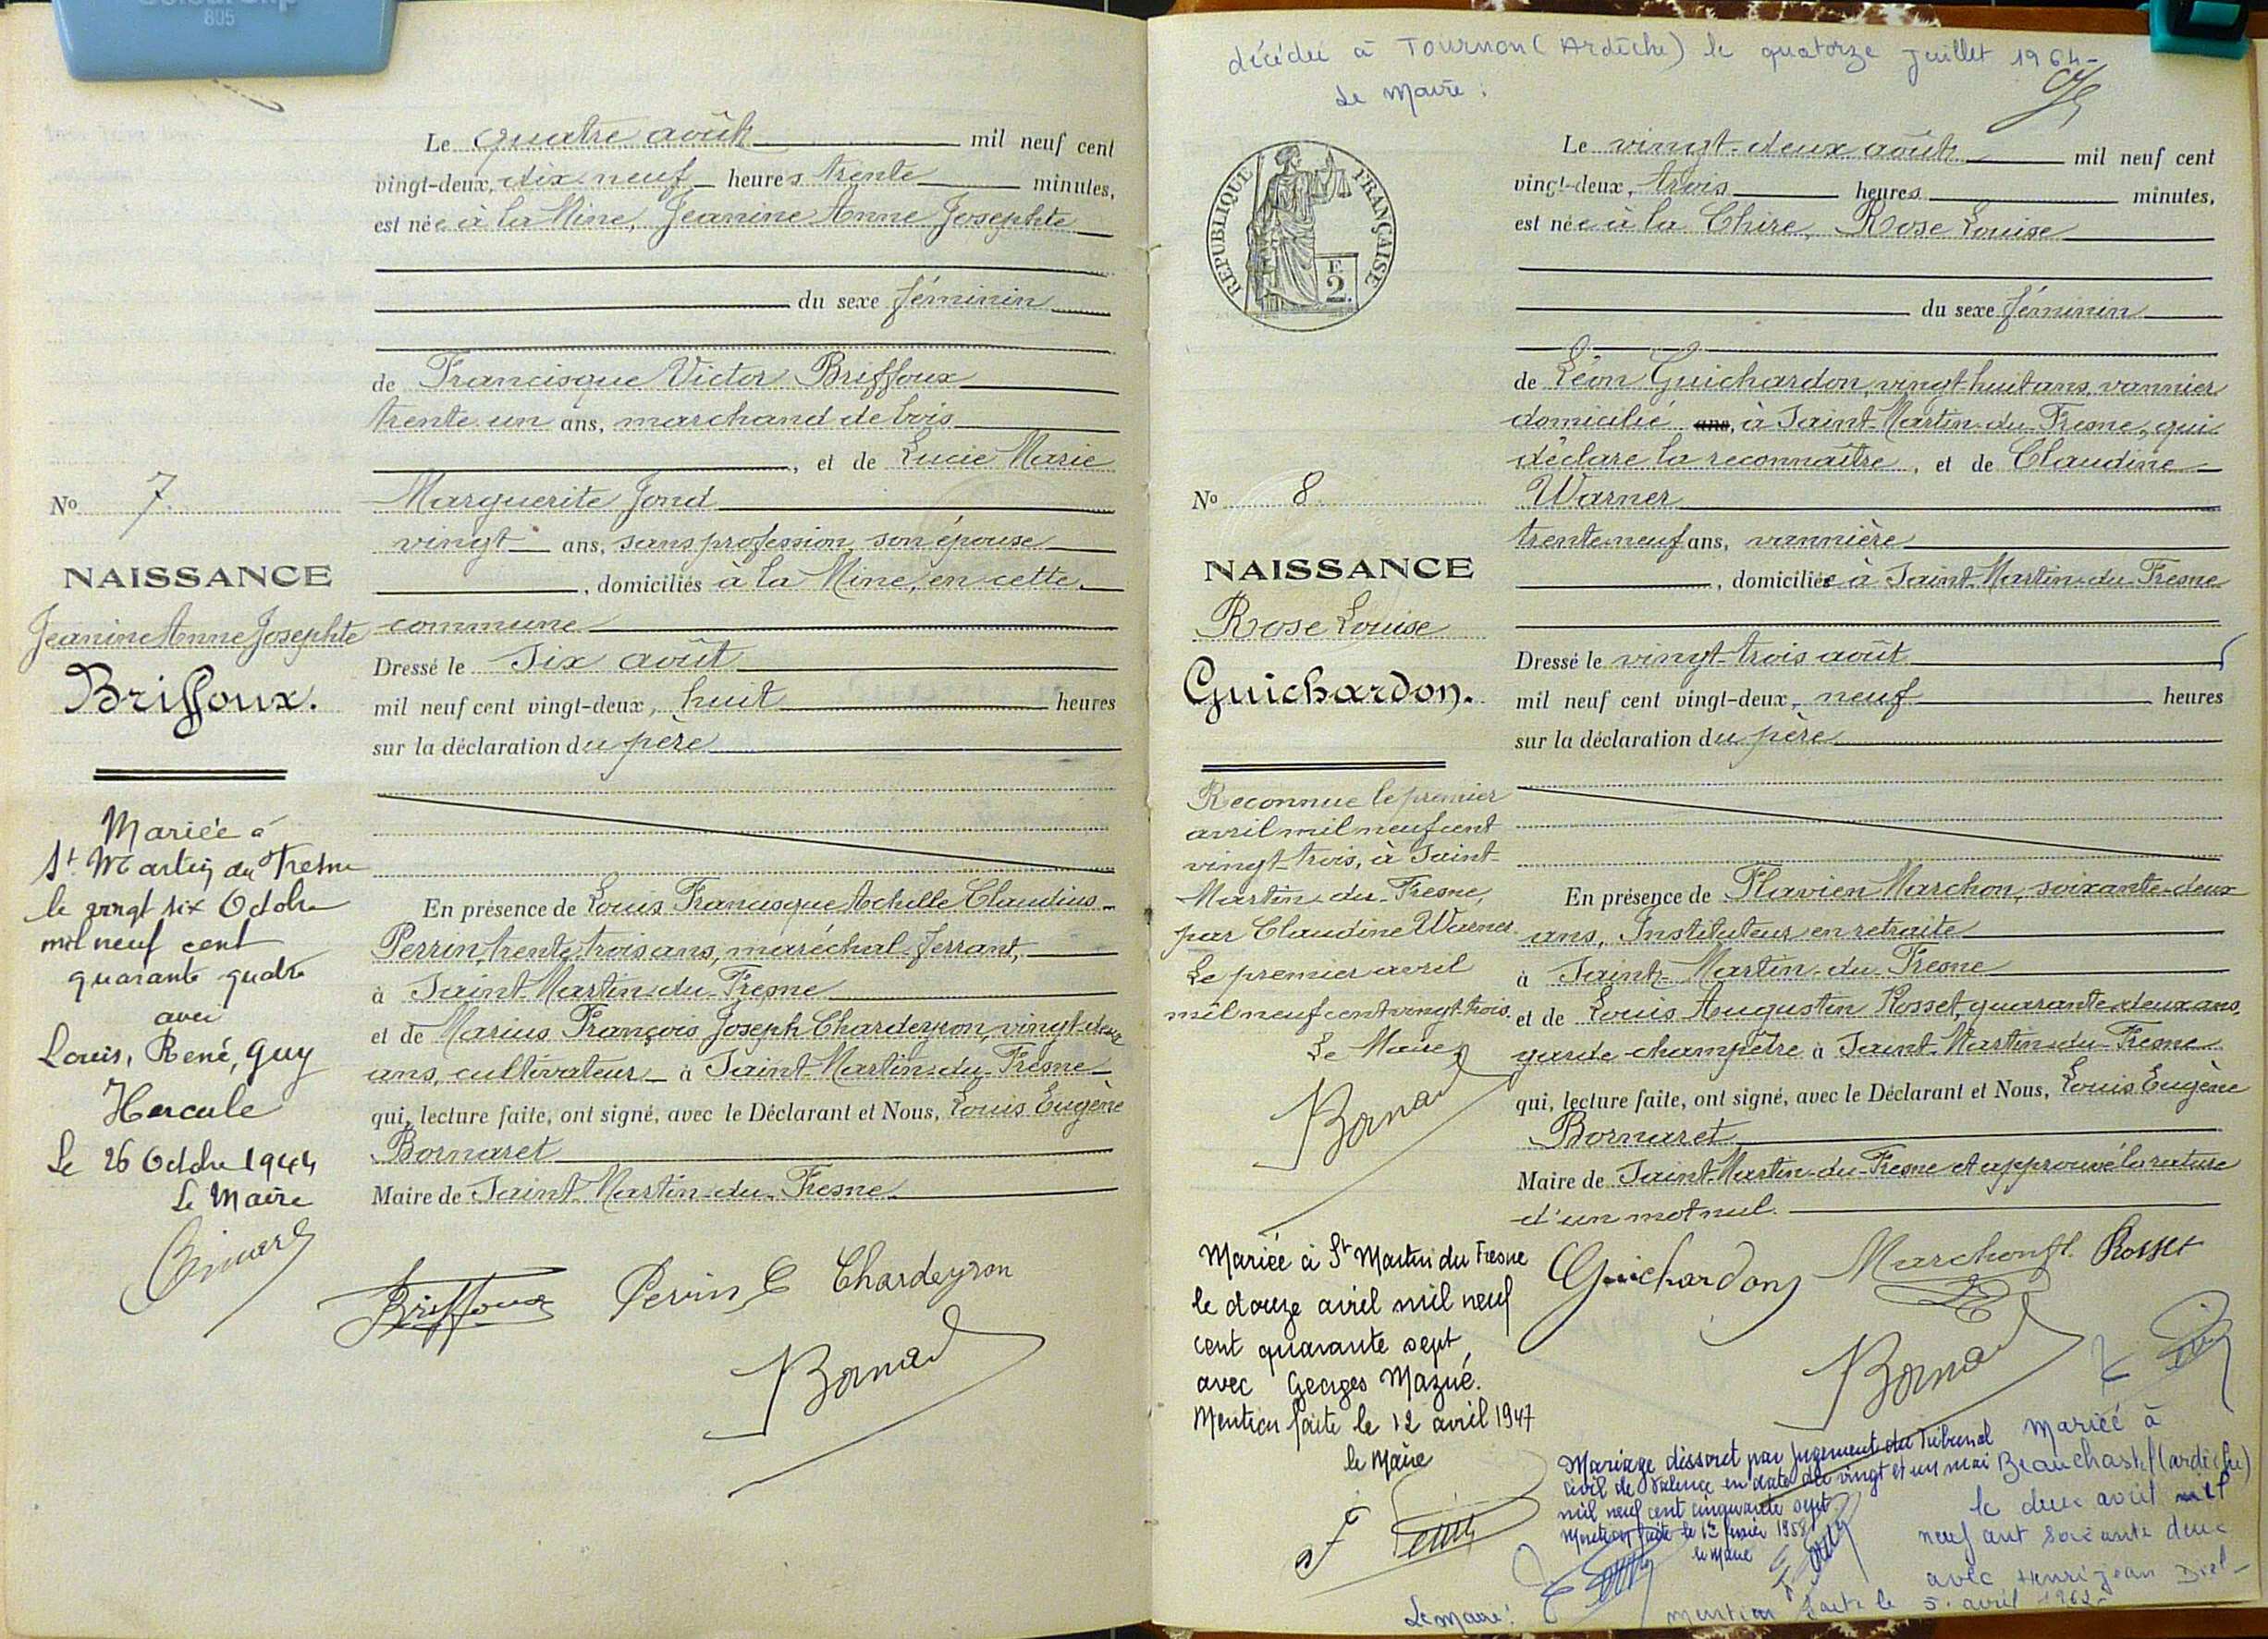 805
Le quatre août mil neuf cent
vingt-deux, dix neuf heures trente minutes,
est née à la Mine, Jeanine Anne Josephte
du sexe féminin
de Francisque Victor Briffoux
trente un ans, marchand de bois
, et de Lucie Marie
Marguerite Jond
vingt ans, sans profession, son épouse
, domiciliés à la Mine, en cette
commune
Dressé le Six août
mil neuf cent vingt-deux, huit heures
sur la déclaration du père
En présence de Louis Francisque Achille Claudius
Perrin, trente trois ans, maréchal-ferrant,
à Saint-Martin-du-Fresne
et de Marius François Joseph Chardeyron, vingt-deux
ans, cultivateur à Saint-Martin-du-Fresne
qui, lecture faite, ont signé, avec le Déclarant et Nous, Louis Eugène
Bornaret
Maire de Saint-Martin-du-Fresne
Briffoux Perrin Chardeyron
Nº 7.
NAISSANCE
Jeanine Anne Josephte
Briffoux.
Mariée à
St Martin du Fresne
le vingt six Octobre
mil neuf cent
quarante quatre
avec
Louis, René, Guy
Hercule
Le 26 Octobre 1944
Le Maire
décédée à Tournon (Ardèche) le quatorze Juillet 1964-
Le Maire :
RÉPUBLIQUE FRANÇAISE
F
2.
Le vingt-deux août mil neuf cent
vingt-deux, trois heures minutes,
est née à la Chire, Rose Louise
du sexe féminin
de Léon Guichardon, vingt huit ans, vannier
domicilié ans, à Saint-Martin-du-Fresne, qui
déclare la reconnaître, et de Claudine
Warner
trente neuf ans, vannière
, domiciliée à Saint-Martin-du-Fresne
Dressé le vingt-trois août
mil neuf cent vingt-deux, neuf heures
sur la déclaration du père
En présence de Flavien Marchon, soixante-deux
ans, Instituteur en retraite
à Saint-Martin-du-Fresne
et de Louis Augustin Rosset, quarante-deux ans,
garde-champêtre à Saint-Martin-du-Fresne
qui, lecture faite, ont signé, avec le Déclarant et Nous, Louis Eugène
Bornaret
Maire de Saint-Martin-du-Fresne et approuvé la rature
d'un mot nul.
Guichardon Marchon Rosset
Nº 8
NAISSANCE
Rose Louise
Guichardon.
Reconnue le premier
avril mil neuf cent
vingt-trois, à Saint-
Martin-du-Fresne,
par Claudine Warner.
Le premier avril
mil neuf cent vingt-trois.
Le Maire,
Mariée à St Martin du Fresne
le douze avril mil neuf
cent quarante sept,
avec Georges Mazué.
Mention faite le 12 avril 1947
le Maire
Mariage dissout par Jugement du Tribunal
civil de Valence en date du vingt et un mai
mil neuf cent cinquante sept
Mention faite le 1er février 1958
le Maire
Mariée à
Beauchastel (ardèche)
le deux avril mil
neuf cent soixante deux
avec Henri Jean
mention faite le 5. avril 1962-
Le Maire :